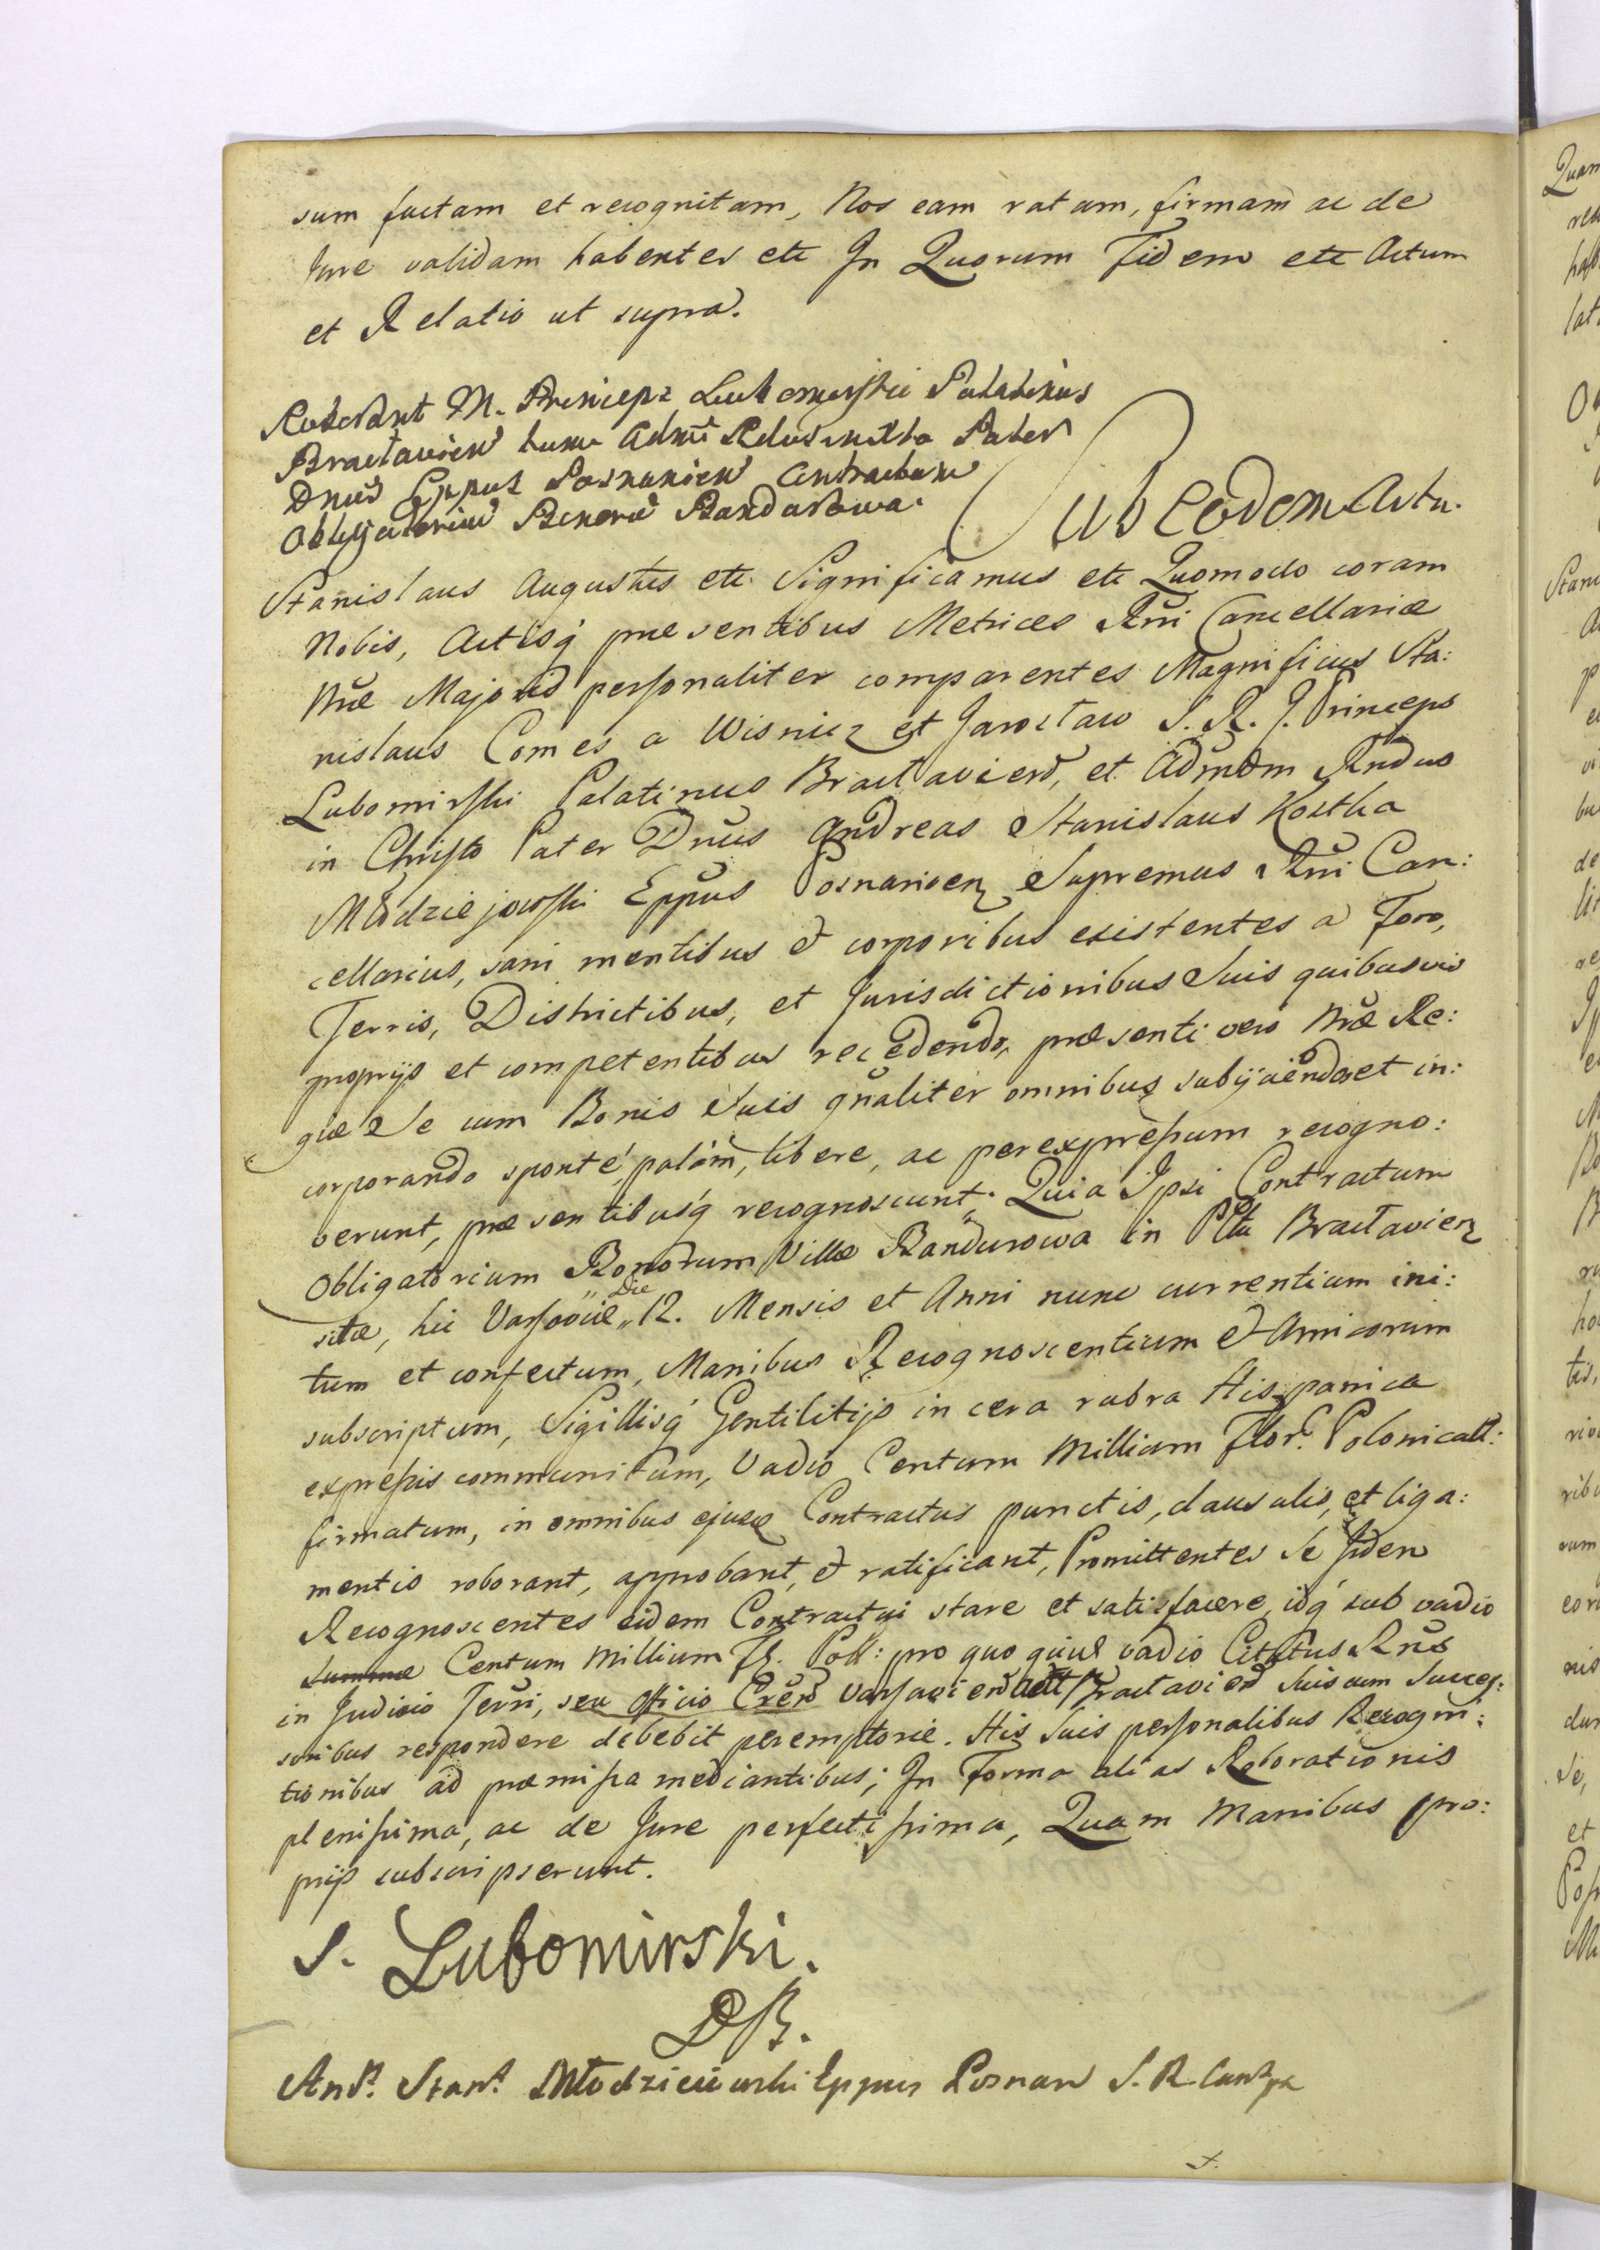 sum factam et recognitam, Nos eam ratam, firmam ac de
Jure validam habentes etc In Quorum Fidem etc Actum
et Relatio ut supra.
Roborant M. Princeps Lubomirski Palatinus
Braclavien tum Adm̄ Rdus in Xto Pater
Dnus Eppus Posnanien Contractum
Obligatorium Bonorū Bandurowa.
Sub Eodem Actu.
Stanislaus Augustus etc. Significamus etc Quomodo coram
Nobis, Actisq́ præsentibus Metrices Rni Cancellariæ
Nræ Majoris personaliter comparentes Magnificus Sta:
nislaus Comes a Wisnicz et Jaroslaw S. R. J. Princeps
Lubomirski Palatinus Braclavien, et Admdm Rndus
in Christo Pater Dnus Andreas Stanislaus Kostka
Młodziejowski Eppus Posnanien Supremus Rni Can:
cellarius, sani mentibus et corporibus existentes a Foro,
Terris, Districtibus, et Jurisdictionibus Suis quibusvis
proprijs et competentibus recedendo, præsenti vero Nræ Re:
giæ Se cum Bonis Suis gnaliter omnibus subijciendo et in:
corporando sponté, palám, libere, ac per expressum recogno:
verunt, præsentibusq́ recognoscunt. Quia Ipsi Contractum
Obligatorium Bonorum Villæ Bandurowa in Pltu Braclavien
sitæ, hic Varsoviæ „ Die „ 12. Mensis et Anni nunc currentium ini:
tum et confectum, Manibus Recognoscentium et Amicorum
subscriptum, Sigillisq́ Gentilitijs in cera rubra Hispanica
expressis communitum, Vadio Centum Millium Flor. Polonicall:
firmatum, in omnibus ejusq Contractus punctis, clausulis, et liga:
mentis roborant, approbant, et ratificant, Promittentes Se Jidem
Recognoscentes eidem Contractui stare et satisfacere, idq́ sub vadio
Summæ Centum Millium Fl. Poll: pro quo quidē vadio Citatus Rnus
in Judicio Terri, seu Officio Cren Varsavien aut Braclavien Suis cum Succes:
soribus respondere debebit peremptorie. His Suis personalibus Recogni:
tionibus ad præmissa mediantibus; In Forma alias Roborationis
plenissima, ac de Jure perfectissima, Quam Manibus pro:
prijs subscripserunt.
S. Lubomirski.
Andr. Stan. Młodzieiowski Eppus Posnan S. R. Canc